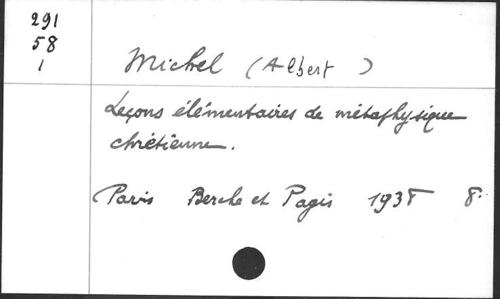 291
58
1
Michel (Albert)
Leçons élémentaires de métaphysique
chrétienne.
Paris Berche et Pagis 1938 8.